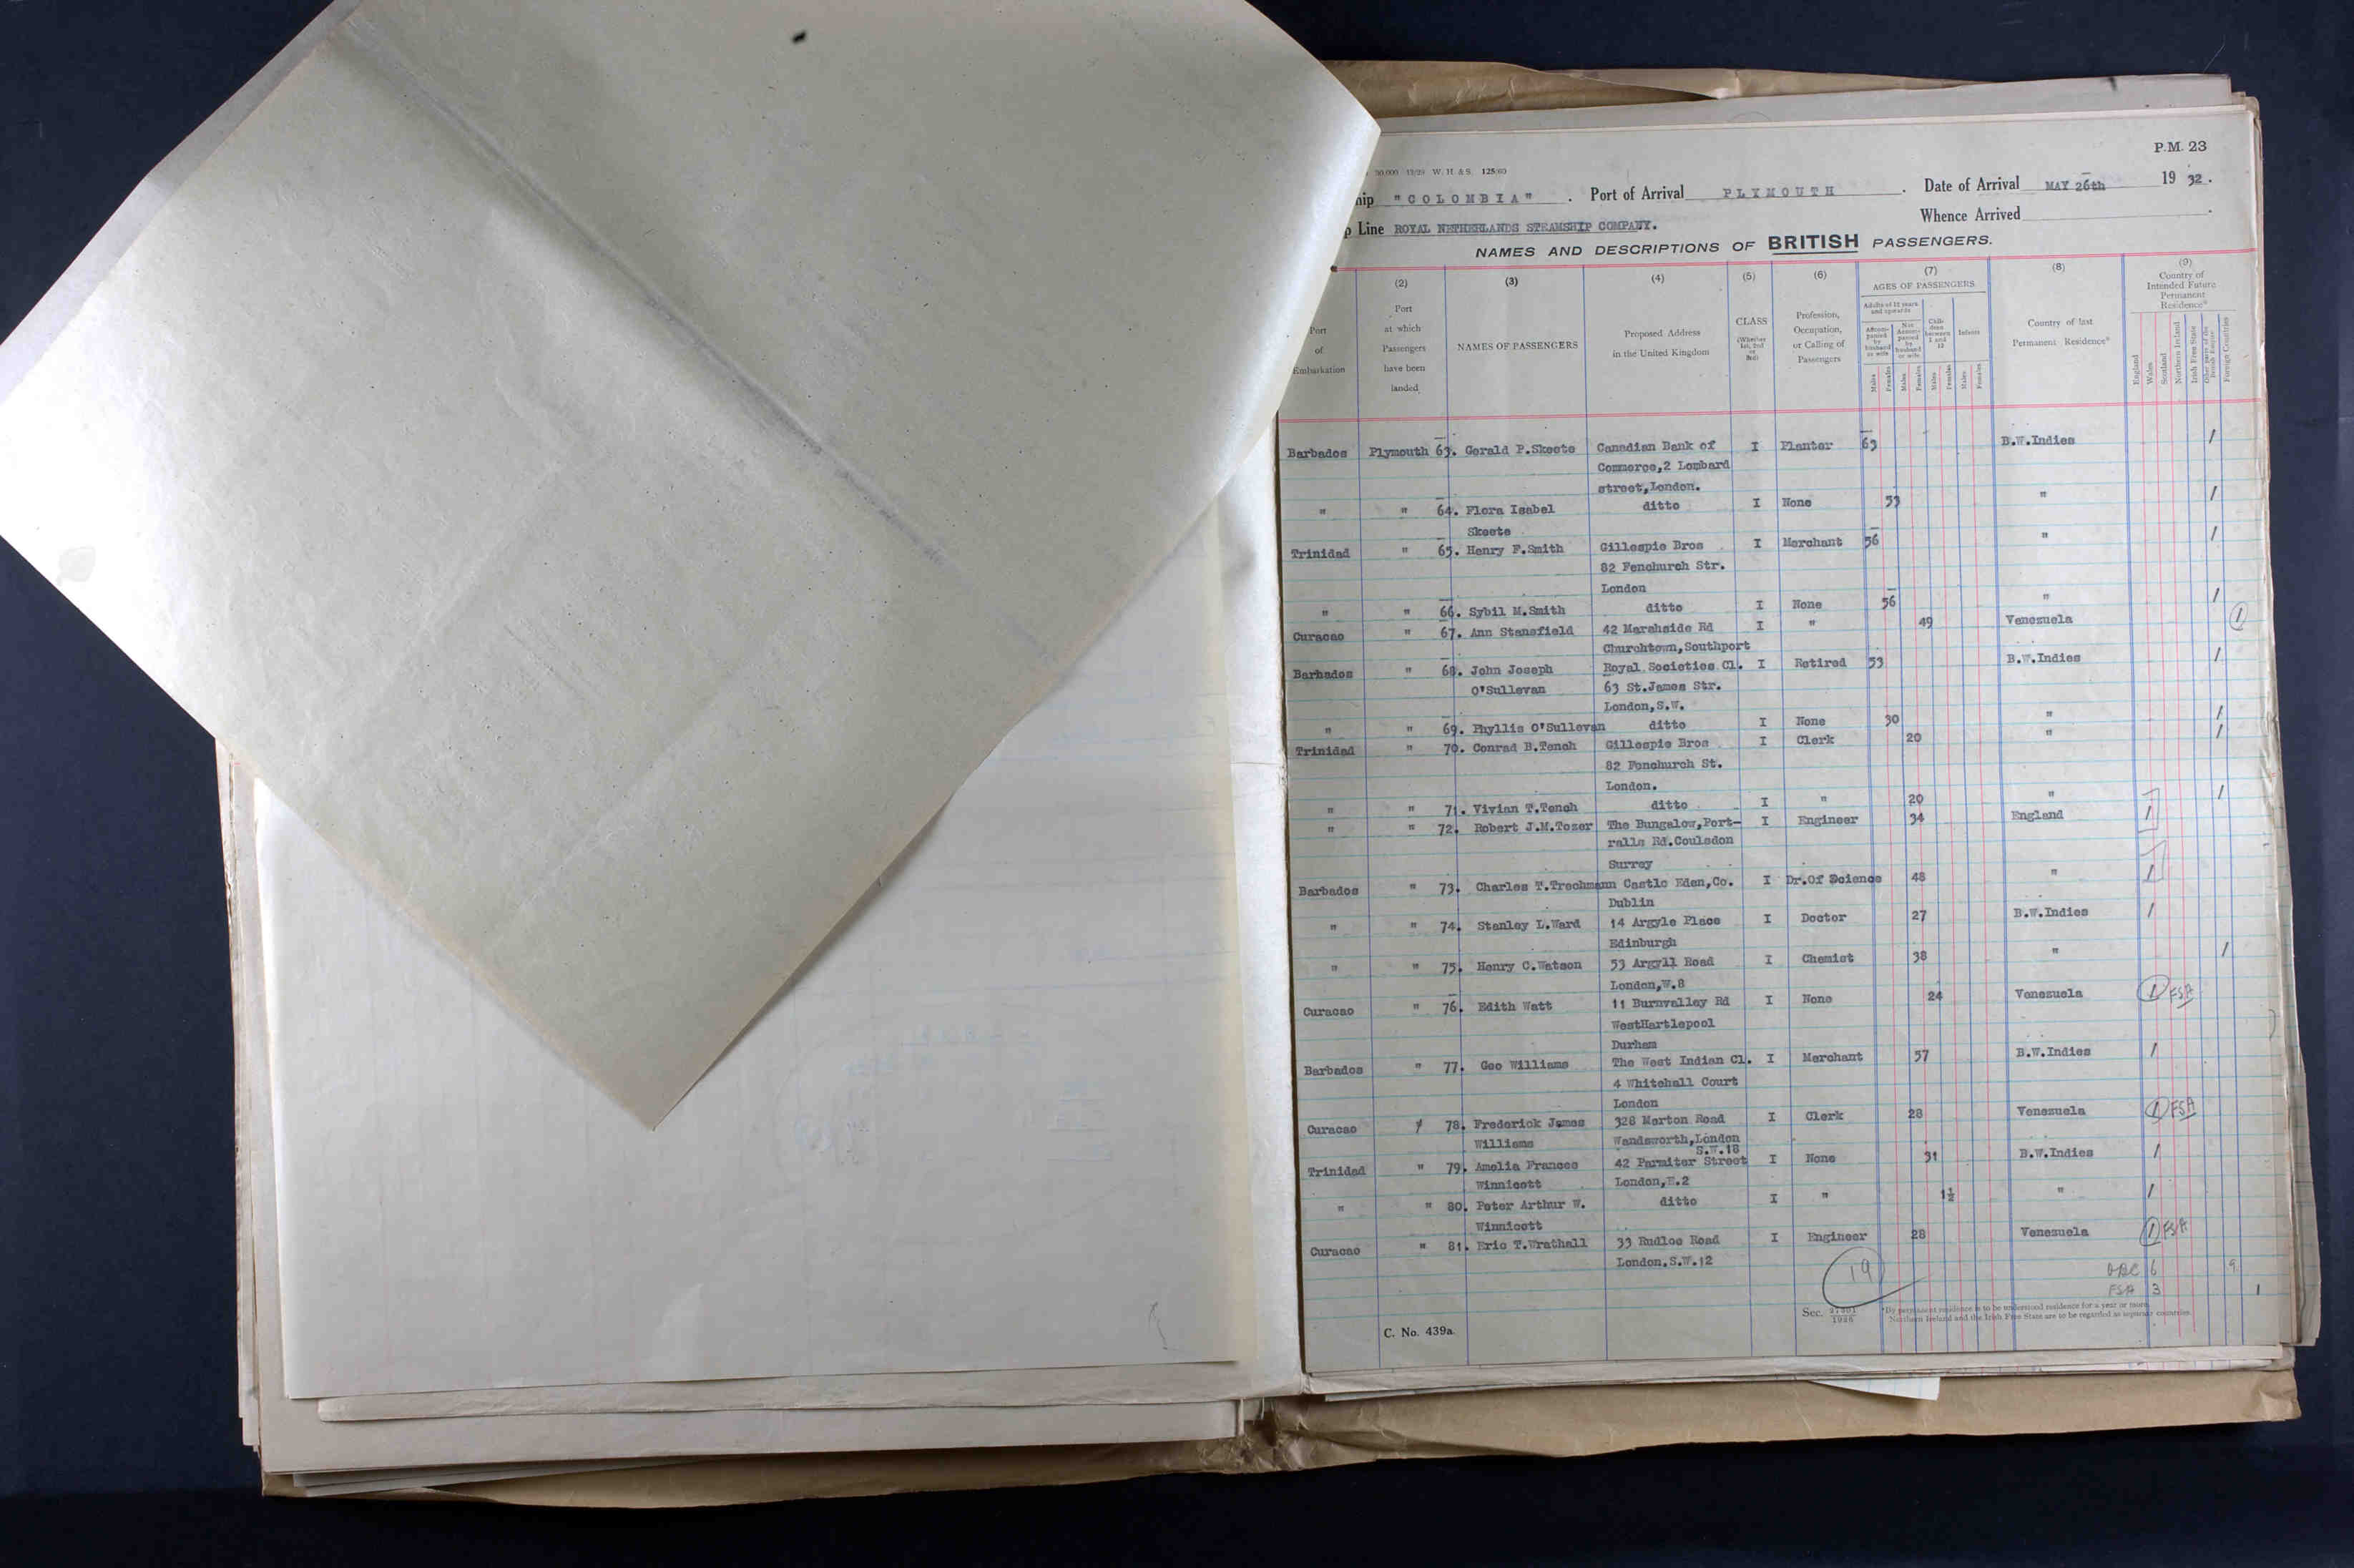 P.M. 23
30,000 12/29 W. H. & S. 125/60
hip "COLOMBIA" . Port of Arrival PLYMOUTH . Date of Arrival MAY 26th 19 32.
p Line ROYAL NETHERLANDS STEAMSHIP COMPANY. Whence Arrived .
NAMES AND DESCRIPTIONS OF BRITISH PASSENGERS.
(2) (3) (4) (5) (6) (7) (8) (9)
Port of Embarkation
Port at which Passengers have been landed
NAMES OF PASSENGERS
Proposed Address in the United Kingdom
CLASS (Whether 1st, 2nd or 3rd)
Profession, Occupation, or Calling of Passengers
AGES OF PASSENGERS
Adults of 12 years and upwards
Accompanied by husband or wife
Not Accompanied by husband or wife
Children between 1 and 12
Infants
Males Females Males Females Males Females Males Females
Country of last Permanent Residence*
Country of Intended Future Permanent Residence*
England Wales Scotland Northern Ireland Irish Free State Other parts of the British Empire Foreign Countries
Barbados Plymouth 63. Gerald P.Skeete Canadian Bank of I Planter 63 B.W.Indies /
Commerce,2 Lombard
street,London.
" " 64. Flora Isabel ditto I None 53 " /
Skeete
Trinidad " 65. Henry F.Smith Gillespie Bros I Merchant 56 " /
82 Fenchurch Str.
London
" " 66. Sybil M.Smith ditto I None 56 " /
Curacao " 67. Ann Stansfield 42 Marshside Rd I " 49 Venezuela 1
Churchtown,Southport
Barbados " 68. John Joseph Royal Societies Cl. I Retired 53 B.W.Indies /
O'Sullevan 63 St.James Str.
London,S.W.
" " 69. Phyllis O'Sullevan ditto I None 30 " /
Trinidad " 70. Conrad B.Tench Gillespie Bros I Clerk 20 " /
82 Fenchurch St.
London.
" " 71. Vivian T.Tench ditto I " 20 " /
" " 72. Robert J.M.Tozer The Bungalow,Port- I Engineer 34 England /
ralls Rd.Coulsdon
Surrey
Barbados " 73. Charles T.Trechmann Castle Eden,Co. I Dr.Of Science 48 " /
Dublin
" " 74. Stanley L.Ward 14 Argyle Place I Doctor 27 B.W.Indies /
Edinburgh
" " 75. Henry C.Watson 53 Argyll Road I Chemist 38 " /
London,W.8
Curacao " 76. Edith Watt 11 Burnvalley Rd I None 24 Venezuela 1 FSA
WestHartlepool
Durham
Barbados " 77. Geo Williams The West Indian Cl. I Merchant 57 B.W.Indies /
4 Whitehall Court
London
Curacao " 78. Frederick James 328 Merton Road I Clerk 28 Venezuela 1 FSA
Williams Wandsworth,London
S.W.18
Trinidad " 79. Amelia Frances 42 Parmiter Street I None 31 B.W.Indies /
Winnicott London,E.2
" " 80. Peter Arthur W. ditto I " 1½ " /
Winnicott
Curacao " 81. Eric T.Wrathall 33 Rudloe Road I Engineer 28 Venezuela 1 FSA
London.S.W.12
19
6 9
FSA 3 1
Sec. 1928
*By permanent residence is to be understood residence for a year or more.
Northern Ireland and the Irish Free State are to be regarded as separate countries
C. No. 439a.